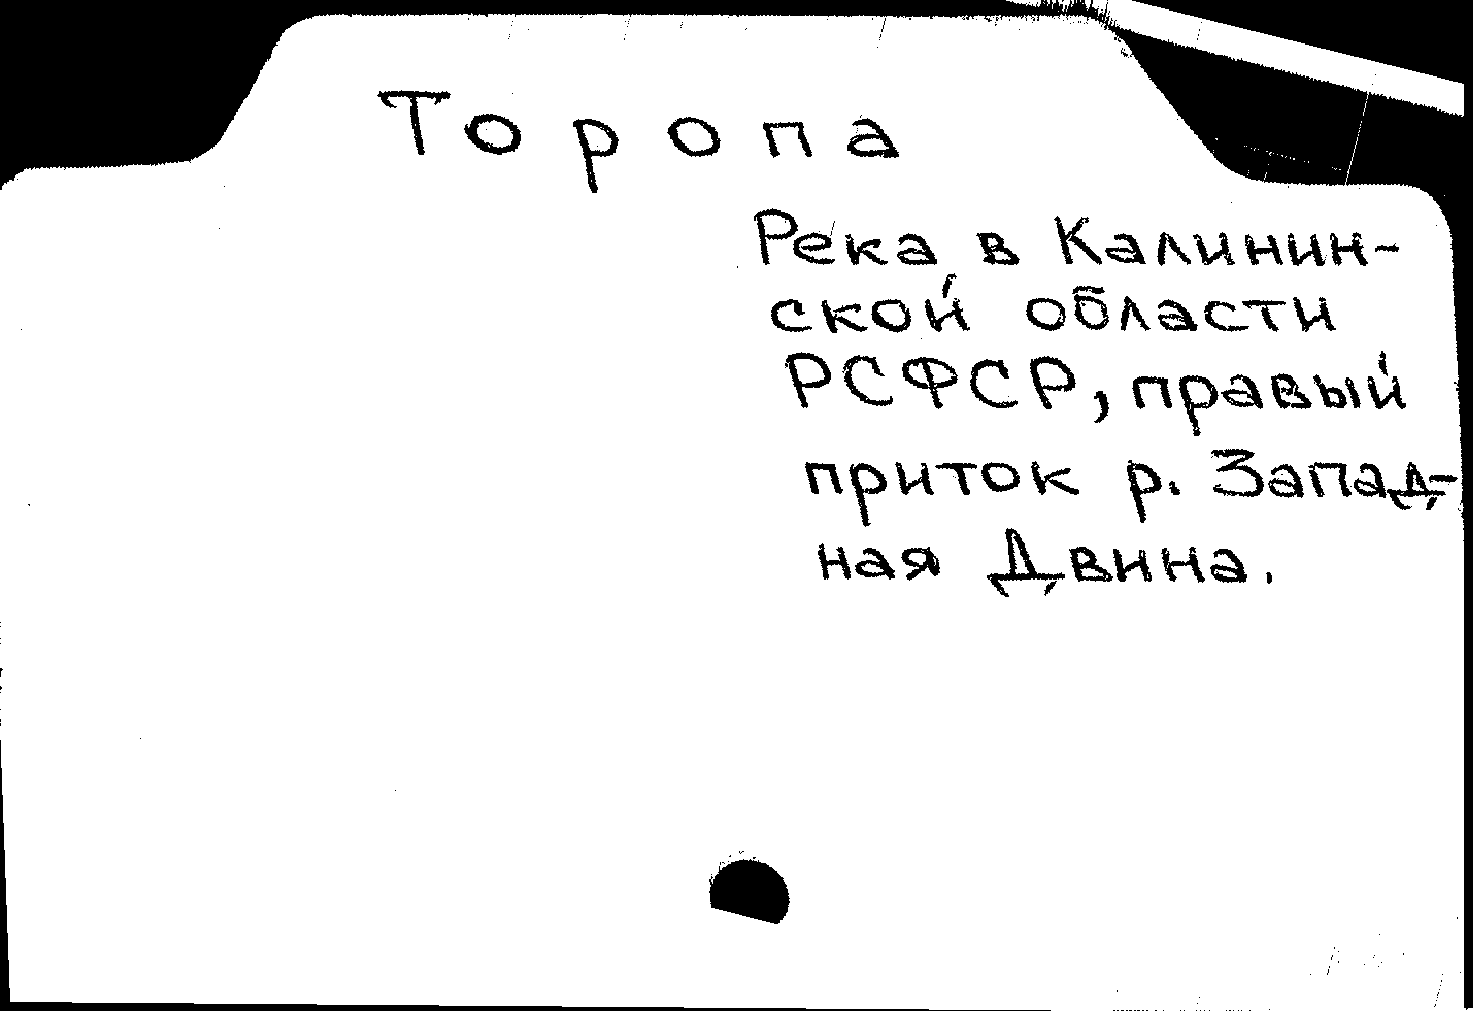 Торопа
Река в Калинин-
ской области
РСФСР, правый
приток р. Запад-
ная Двина.